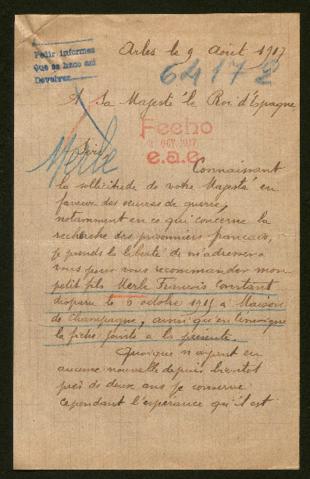 Arles le 9 Août 1917
Pedir informes
Que se haga así
Devolver
64172
A Sa Majesté le Roi d'Espagne
Fecho
OCT 1917
e.a.e.
Sire
Merle
Connaissant
la sollicitude de votre Majesté en
faveur des oeuvres de guerre,
notamment en ce qui concerne la
recherche des prisonniers francais,
je prends la liberté de m'adresser a
vous pour vous recommander mon
petit fils Merle Francois Constant
disparu le 6 octobre 1915 à Maison
de Champagne, ainsi qu'en témoigne
la fiche jointe a la présente.
Quoique n'ayant eu
aucune nouvelle depuis bientot
près de deux ans je conserve
cependant l'espérance qu'il est